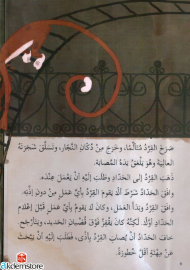 صَرَخَ القِرْدُ مُتَأَلِّمًا، وَخَرَجَ مِنْ دُكّانِ النَّجّارِ، وَتَسَلَّقَ شَجَرَتَهُ
العالِيَةَ وَهُوَ يَلْعَقُ يَدَهُ المُصابَةَ.
ذَهَبَ القِرْدُ إِلى الحَدّادِ وَطَلَبَ إِلَيْهِ أَنْ يَعْمَلَ عِنْدَهُ.
وافَقَ الحَدّادُ شَرْطَ أَلّا يَقومَ القِرْدُ بِأَيِّ عَمَلٍ مِنْ دونِ إِذْنِهِ.
وافَقَ القِرْدُ وَبَدَأَ العَمَلَ، وَكانَ لا يَقومُ بِأَيِّ عَمَلٍ قَبْلَ إِعْلامِ
الحَدّادِ أَوَّلًا. لٰكِنَّهُ كانَ يَقْفِزُ فَوْقَ قُضْبانِ الحَديدِ، وَيَتَأَرْجَحُ.
خافَ الحَدّادُ أَنْ يُصابَ القِرْدُ بِأَذًى، فَطَلَبَ إِلَيْهِ أَنْ يَبْحَثَ
عَنْ مِهْنَةٍ أَقَلَّ خُطورَةً.
kdemstore